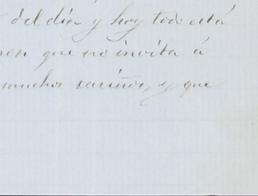 del día y hoy todo está
que no invita á
muchos cariños, y que